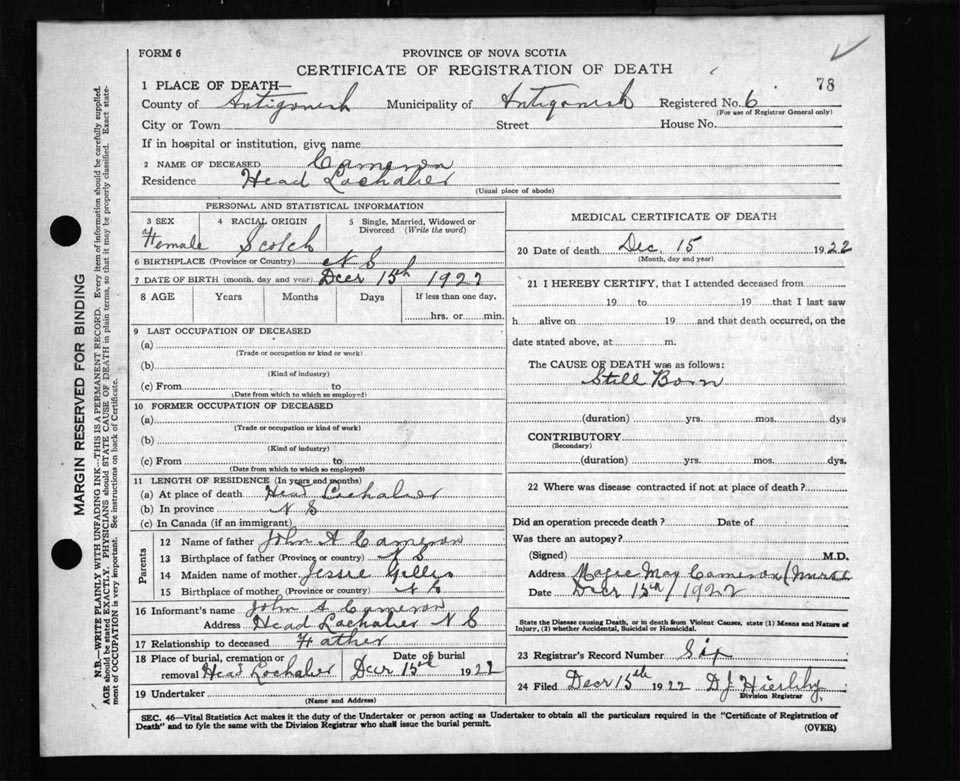 FORM 6
PROVINCE OF NOVA SCOTIA
CERTIFICATE OF REGISTRATION OF DEATH
78
1 PLACE OF DEATH—
County of Antigonish Municipality of Antigonish Registered No. 6
(For use of Registrar General only)
City or Town Street House No.
If in hospital or institution, give name
2 NAME OF DECEASED Cameron
Residence Head Lochaber
(Usual place of abode)
PERSONAL AND STATISTICAL INFORMATION
3 SEX 4 RACIAL ORIGIN 5 Single, Married, Widowed or Divorced (Write the word)
Female Scotch
6 BIRTHPLACE (Province or Country) N S
7 DATE OF BIRTH (month, day and year) Decr 15th 1922
8 AGE Years Months Days If less than one day,
hrs. or min.
9 LAST OCCUPATION OF DECEASED
(a)
(Trade or occupation or kind or work)
(b)
(Kind of industry)
(c) From to
(Date from which to which so employed)
10 FORMER OCCUPATION OF DECEASED
(a)
(Trade or occupation or kind of work)
(b)
(Kind of industry)
(c) From to
(Date from which to which so employed)
11 LENGTH OF RESIDENCE (In years and months)
(a) At place of death Head Lochaber
(b) In province N S
(c) In Canada (if an immigrant)
Parents
12 Name of father John A Cameron
13 Birthplace of father (Province or country) N S
14 Maiden name of mother Jessie Gillis
15 Birthplace of mother (Province or country) N S
16 Informant's name John A Cameron
Address Head Lochaber N S
17 Relationship to deceased Father
18 Place of burial, cremation or removal Head Lochaber Date of burial Decr 15th 1922
19 Undertaker
(Name and Address)
MEDICAL CERTIFICATE OF DEATH
20 Date of death Dec. 15 1922
(Month, day and year)
21 I HEREBY CERTIFY, that I attended deceased from
19 to 19 that I last saw
h alive on 19 and that death occurred, on the
date stated above, at m.
The CAUSE OF DEATH was as follows:
Still Born
(duration) yrs. mos. dys
CONTRIBUTORY
(Secondary)
(duration) yrs. mos. dys.
22 Where was disease contracted if not at place of death?
Did an operation precede death? Date of
Was there an autopsy?
(Signed) M.D.
Address May Cameron (Nurse
Date Decr 15th / 1922
State the Disease causing Death, or in death from Violent Causes, state (1) Means and Nature of
Injury, (2) whether Accidental, Suicidal or Homicidal.
23 Registrar's Record Number Six
24 Filed Decr 15th 1922 D J
Division Registrar
SEC. 46—Vital Statistics Act makes it the duty of the Undertaker or person acting as Undertaker to obtain all the particulars required in the "Certificate of Registration of
Death" and to fyle the same with the Division Registrar who shall issue the burial permit.
(OVER)
MARGIN RESERVED FOR BINDING
N.B.—WRITE PLAINLY WITH UNFADING INK—THIS IS A PERMANENT RECORD. Every item of information should be carefully supplied.
AGE should be stated EXACTLY. PHYSICIANS should STATE CAUSE OF DEATH in plain terms, so that it may be properly classified. Exact state-
ment of OCCUPATION is very important. See instructions on back of Certificate.